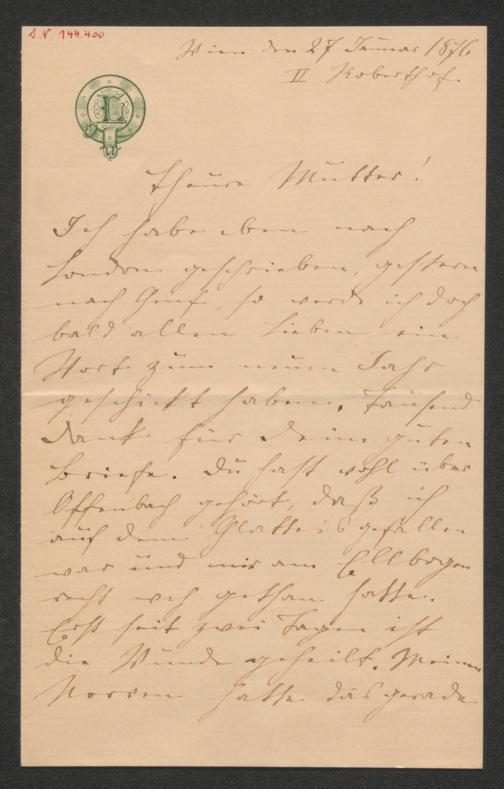 I.N. 144.400
Wien den 27 Januar 1876
II Roberthof.
L
Theure Mutter!
Ich habe eben nach
London geschrieben, gestern
nach Genf, so werde ich doch
bald allen Lieben ein
Wort zum neuen Jahr
geschickt haben. Tausend
Dank für Deine guten
Briefe. Du hast wohl über
Offenbach gehört, daß ich
auf dem Glatteis gefallen
war und mir am Ellbogen
recht weh gethan hatte.
Erst seit zwei Tagen ist
die Wunde geheilt. Meinen
Nerven hatte das gerade